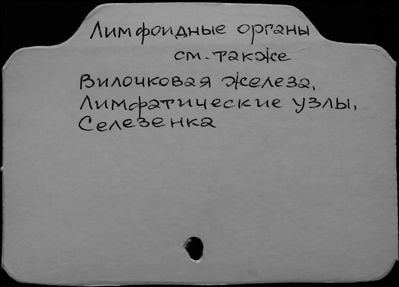 Лимфоидные органы
см. также
Вилочковая железа,
Лимфатические узлы,
Селезенка